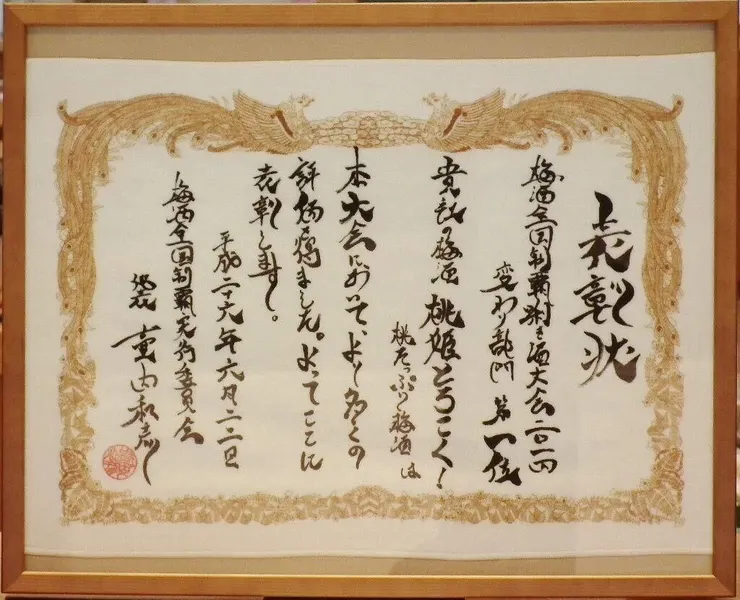 表彰状
梅酒全国制覇利き酒大会二〇一四
変わり部門 第一位
貴社の梅酒 桃姫とろこく!
桃たっぷり梅酒 は
本大会において、より多くの
評価を得ました。よってここに
表彰します。
平成二十六年六月二二日
梅酒全国制覇実行委員会